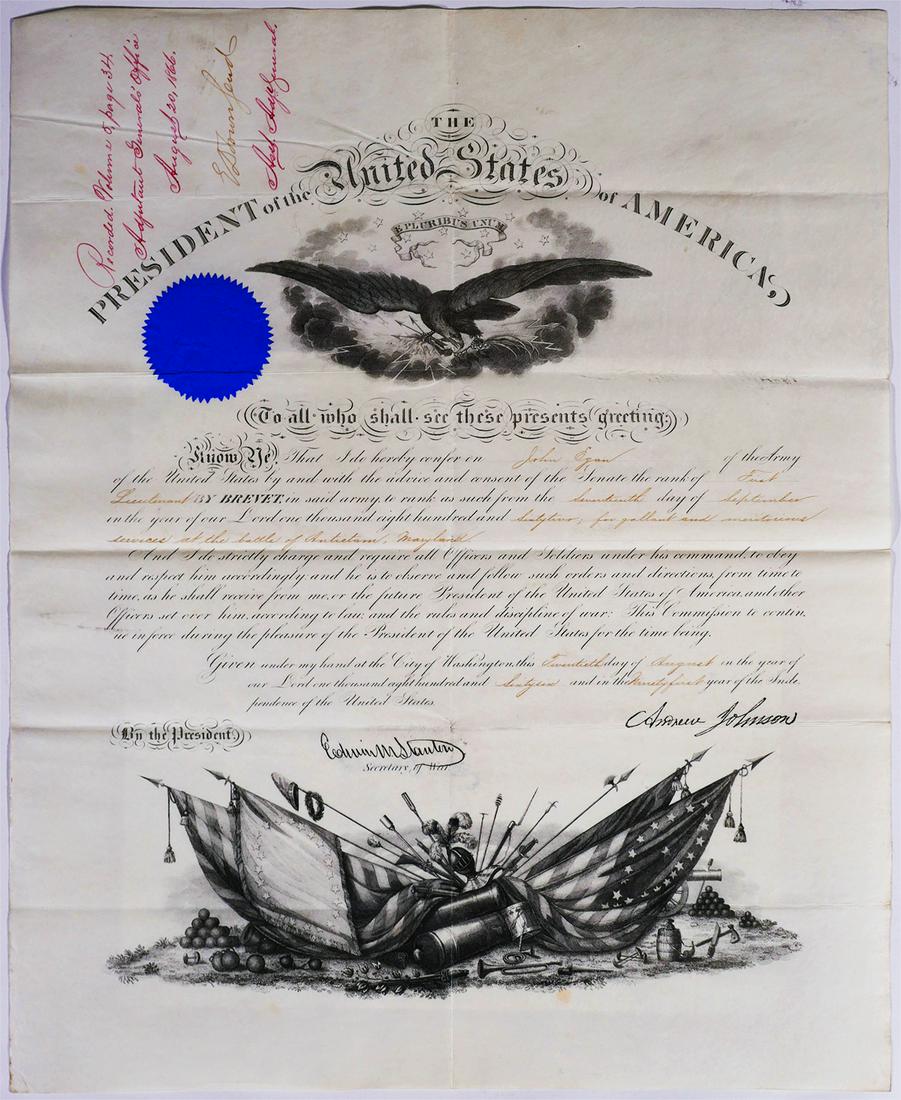 Recorded Volume 5, page 34.
Adjutant General's Office
August 20, 1866.
E D Townsend
Asst. Adjt. General.
THE
PRESIDENT of the United States of AMERICA,
E PLURIBUS UNUM
To all who shall see these presents greeting:
Know Ye, That I do hereby confer on John Egan of the Army
of the United States by and with the advice and consent of the Senate the rank of First
Lieutenant BY BREVET, in said army, to rank as such from the seventeenth day of September
in the year of our Lord one thousand eight hundred and sixty two, for gallant and meritorious
services at the battle of Antietam, Maryland
And I do strictly charge and require all Officers and Soldiers under his command, to obey
and respect him accordingly: and he is to observe and follow such orders and directions, from time to
time, as he shall receive from me, or the future President of the United States of America, and other
Officers set over him, according to law, and the rules and discipline of war: This Commission to contin,
ue in force during the pleasure of the President of the United States for the time being.
Given under my hand at the City of Washington, this Twentieth day of August in the year of
our Lord one thousand eight hundred and sixty six and in the Ninety first year of the Inde,
pendence of the United States.
Andrew Johnson
By the President,
Edwin M Stanton
Secretary, of War